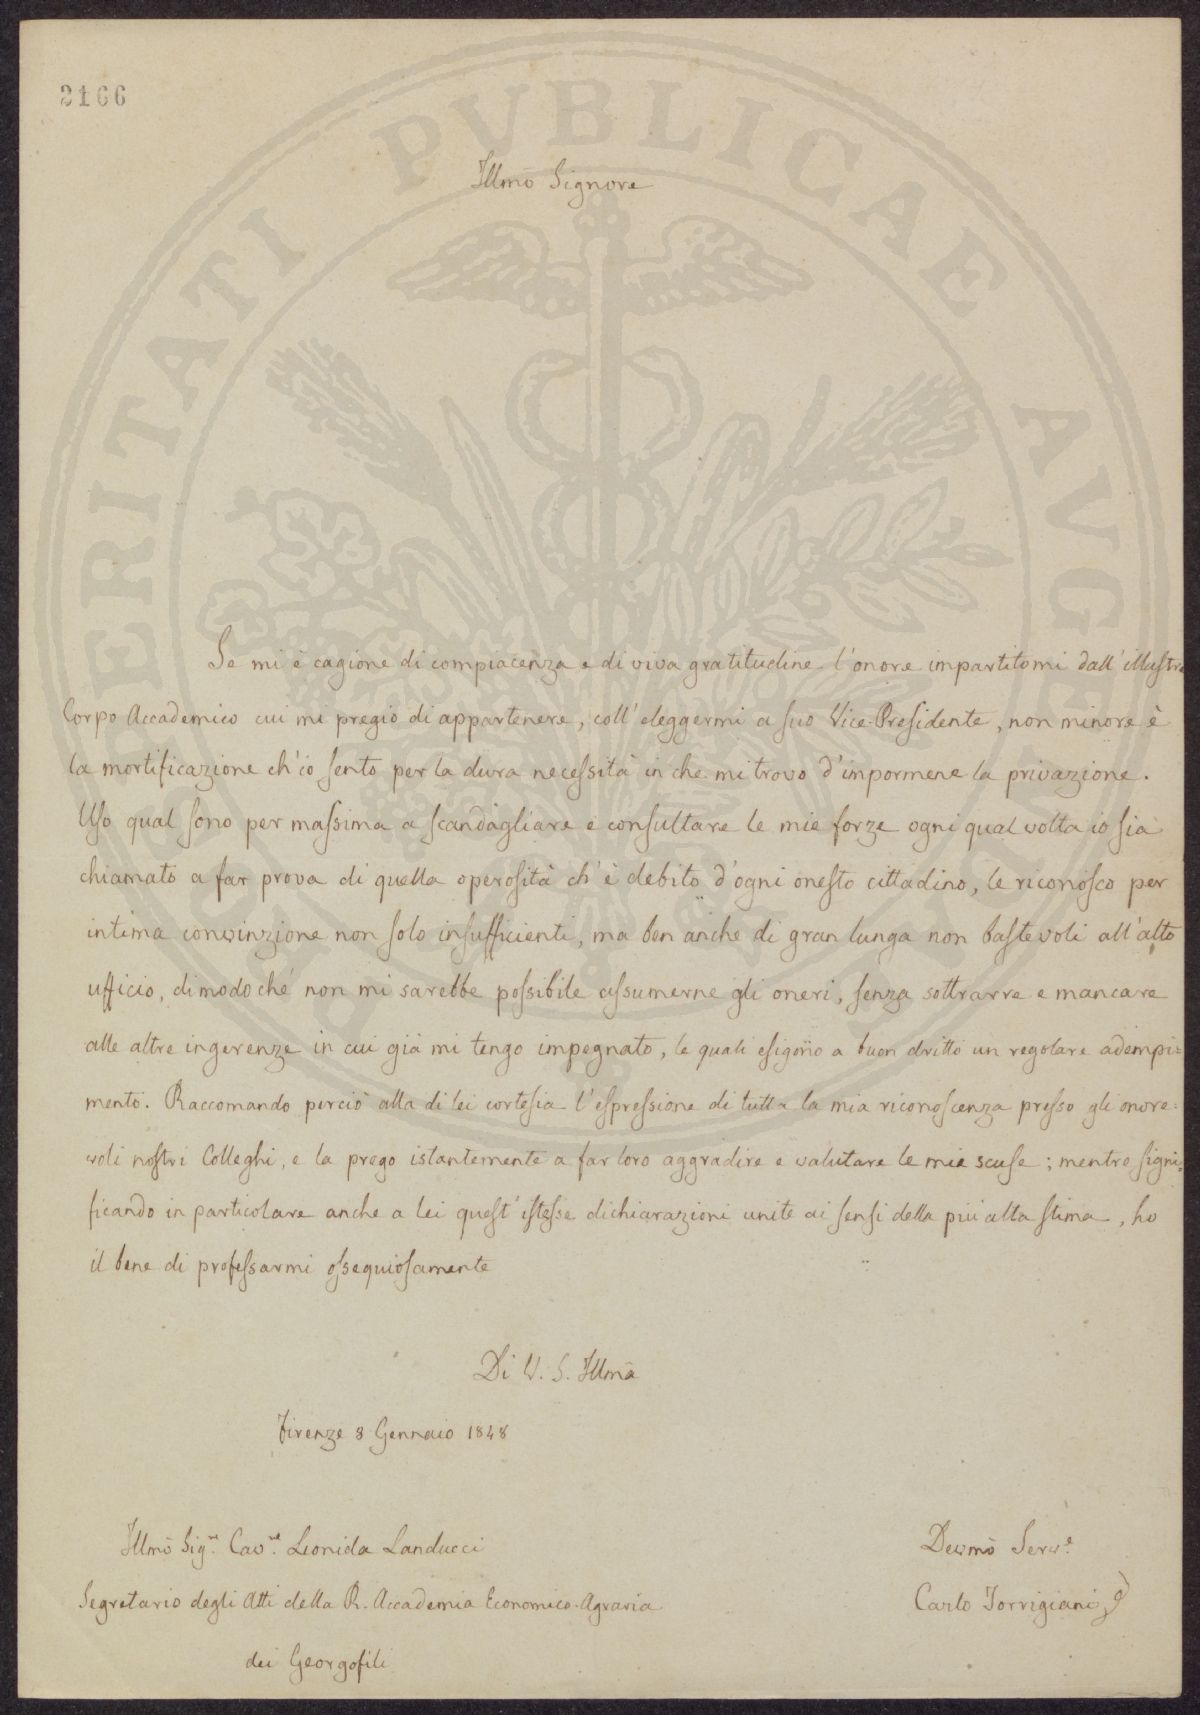 2166
PROSPERITATI PVBLICAE AVGENDAE
Illmo Signore
Se mi è cagione di compiacenza e di viva gratitudine l'onore impartitomi dall'illustre
Corpo Accademico cui mi pregio di appartenere, coll'eleggermi a suo Vice-Presidente, non minore è
la mortificazione ch'io sento per la dura necessità in che mi trovo d'impormene la privazione.
Uso qual sono per massima a scandagliare e consultare le mie forze ogni qual volta io sia
chiamato a far prova di quella operosità ch'è debito d'ogni onesto cittadino, le riconosco per
intima convinzione non solo insufficienti, ma ben anche di gran lunga non bastevoli all'alto
ufficio, dimodoché non mi sarebbe possibile assumerne gli oneri, senza sottrarre e mancare
alle altre ingerenze in cui già mi tengo impegnato, le quali esigono a buon dritto un regolare adempi=
mento. Raccomando perciò alla di lei cortesia l'espressione di tutta la mia riconoscenza presso gli onore=
voli nostri Colleghi, e la prego istantemente a far loro aggradire e valutare le mie scuse; mentre signi=
ficando in particolare anche a lei quest'istesse dichiarazioni unite ai sensi della più alta stima, ho
il bene di professarmi ossequiosamente
Di V. S. Illma
Firenze 8 Gennaio 1848
Illmo Sigre. Cavre. Leonida Landucci
Segretario degli Atti della R. Accademia Economico-Agraria
dei Georgofili
Devmo Serve.
Carlo Torrigiani